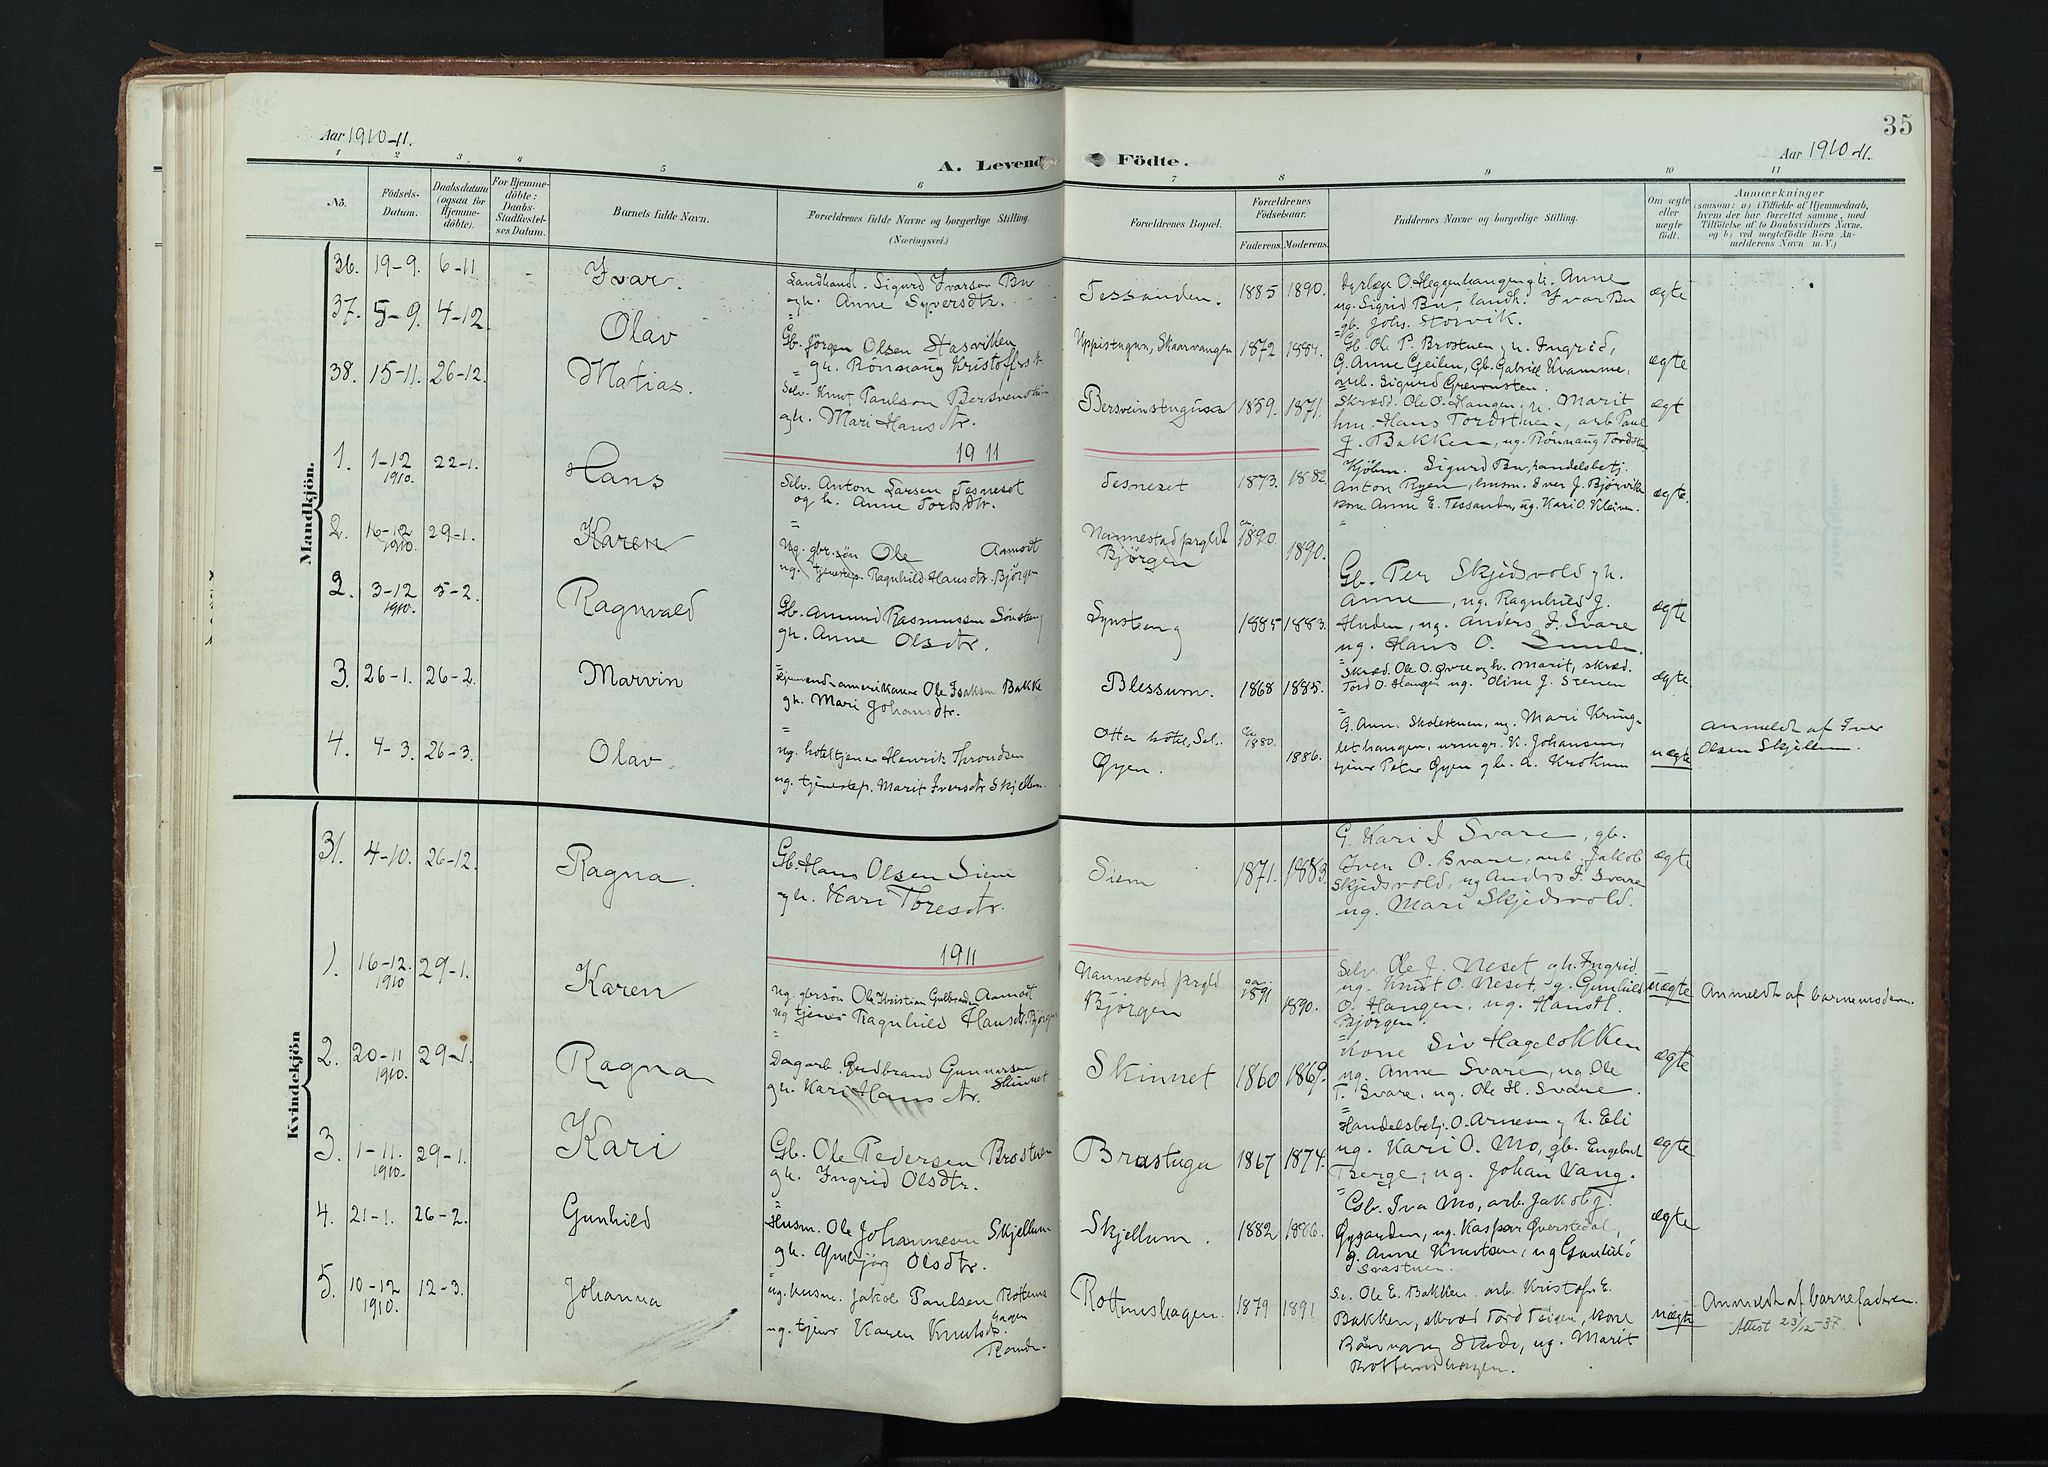 35
Aar 1910-11.
A. Levende Födte.
Aar 1910-11.
1 2 3. 4 5 6 7 8 9 10 11
No.
Födsels-Datum.
Daabsdatum (ogsaa for Hjemme-döbte).
For Hjemme-döbte: Daabs-Stadfæstel-ses Datum.
Barnets fulde Navn.
Forældrenes fulde Navne og borgerlige Stilling.
(Næringsvei.)
Forældrenes Bopæl.
Forældrenes Födselsaar.
Faderens. Moderens.
Faddernes Navne og borgerlige Stilling.
Om ægte eller uægte födt.
Anmærkninger
(saasom: a) i Tilfælde af Hjemmedaab,
hvem der har forrettet samme, med
Tilföielse af to Daabsvidners Navne.
og b) ved uægtefödte Börn An-
melderens Navn m. V.)
Mandkjön.
36. 19-9. 6-11 - Ivar.
Landhand. Sigurd Ivarson Bu
og h. Anne Syversdtr.
Tessanden. 1885 1890.
O. Heggenhaugen g h. Anne
ug. Sigrid Bu, landh. Ivar Bu
gb. Johs. Storvik.
ægte
37. 5-9. 4-12. Olav
Gb. Jörgen Olsen Hasvikken
g h. Rönnaug Kristoffersdtr
Uppistugun, Skaarvangen 1872 1884.
Gb. Ole P. Brostuen g h. Ingrid,
G. Anne Gjeilen, Gb. Gabriel Kvamme,
arb. Sigurd
ægte
38. 15-11. 26-12. Matias.
Selv. Knut Paulson Bersvenstuen
g h. Mari Hansdtr.
Bersveinstugua 1859. 1871.
Skrædd. Ole O. Haugen g h. Marit
hm. Hans Tordstuen, arb Paul
J. Bakken, ug. Rönnaug Tordstuen
ægt
1911
1. 1-12 1910. 22-1. Hans
Selv. Anton Larsen Tesneset
og h. Anne Tordsdtr.
Tesneset 1873. 1882
Kjöbm. Sigurd Bu, handelsbetj.
Anton Ryen, husm. Iver J. Bjørvik
kone Anne E. Tessanden, ug. Kari O. Kleiven.
ægte.
2. 16-12 1910. 29-1. Karen
Ug. gbr.søn Ole Aamodt
ug. tjenestep. Ragnhild Hansdtr. Bjørgen
Nannestad prgld
Bjørgen
ca. 1890 1890.
2. 3-12 1910. 5-2. Ragnvald
Gb. Amund Rasmussen Sønsteng
g h. Anne Olsdtr.
Synsteng 1885 1883.
Gb. Per Skjedsvold g h.
Anne, ug. Ragnhild J.
ug. Anders J. Svare
ug. Hans O. Sunde.
ægte
3. 26-1. 26-2. Marvin
Hjemvendt amerikaner Ole Isaksen Bakke
g h. Mari Johansdtr.
Blessum. 1868 1885.
Skræd. Ole O. Øvre og h. Marit, skræd.
Tord O. Haugen ug. Oline J. Stenen
ægte
4. 4-3. 26-3. Olav
Ug. hoteltjener Henrik Throndsen
ug. tjenestep. Marit Iversdtr Skjellum.
Otta hotel, Sel.
Øyen.
ca 1880. 1886.
G. Ann. Skolestuen, ug. Mari Kring-
lethaugen, urmgr. K. Johansen,
tjener Peter Øyen g h. A. Krokum
uægte
Anmeldt af Iver
Olsen Skjellum.
Kvindekjön
31. 4-10. 26-12. Ragna.
Gb. Hans Olsen Siem
og h. Kari Thoresdtr.
Siem 1871. 1883.
G. Kari J Svare, gb.
Iven O. Svare, arb. Jakob
Skjedsvold, ug Andrs J. Svare
ug. Mari Skjedsvold.
ægte
1911
1. 16-12. 1910 29-1. Karen
ug. gbrsön Ole Kristian Gulbrandsen Aamodt
ug tjener Ragnhild Hansdtr. Bjørgen
Nannestad prgld
Bjørgen
ca. 1891 1890.
Selv. Ole J. Neset g h. Ingrid
ug. Knut O. Neset, g. Gunhild
O. Haugen, ug. Hans H.
Bjørgen.
uægte
Anmeldt af barnemoderen.
2. 20-11 1910. 29-1. Ragna
Dagarb. Gudbrand Gunnarsen Skinnet
g h. Kari Hansdtr.
Skinnet 1860 1869.
Kone Siv Hageløkken
ug. Anne Svare, ug Ole
T. Svare, ug. Ole H. Svare.
ægte
3. 1-11. 1910. 29-1. Kari
Gb. Ole Pedersen Brostuen
g h. Ingrid Olsdtr.
Brustuga 1867 1874.
Handelsbetj. O. Arnesen g h. Eli
ug. Kari O. Mo, gb. Engebret
Berge, ug. Johan Vang.
ægte
4. 21-1. 26-2. Gunhild
Husm. Ole Johannesen Skjellum
g h. Ymbjørg Olsdtr.
Skjellum. 1882 1886.
Gb. Iva Mo, arb. Jakob J.
ug. Kaspar Øverstedal,
g. Anne Knutsen, ug Gunhild
Svastuen.
ægte
5. 10-12 1910. 12-3. Johanna
ug. husm. Jakob Paulsen Rottems
hagen
ug. tjener Karen Knutsdtr.
Rottemshagen. 1879 1891
Sv. Ole E. Bakken. arb. Kristofr E.
Bakken, skræd Tord Teigen, kone
Rønnaug Stade, ug. Marit
Rottemshagen.
uægte
Anmeldt af barnefaderen.
Attest 23/12-37.